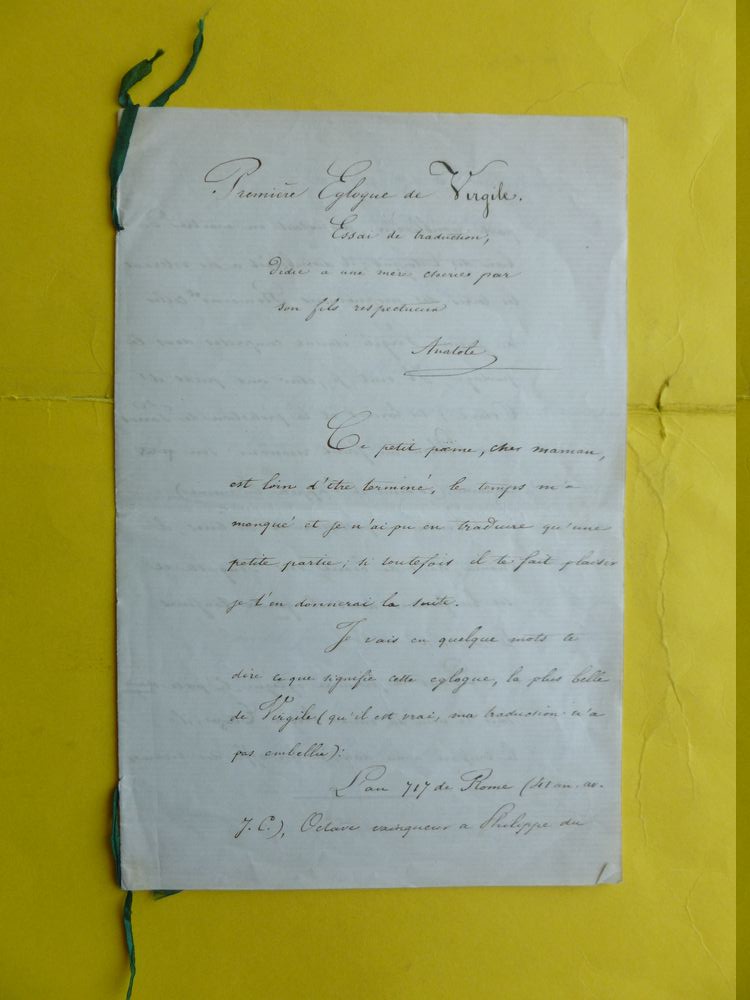 Première Eglogue de Virgile.
Essai de traduction,
Dedié a une mère cheries par
son fils respectueux
Anatole
Ce petit pöeme, cher maman,
est loin d'être terminé, le temps m'a
manqué et je n'ai pu en traduire qu'une
petite partie; si toutefois il te fait plaisir
je t'en donnerai la suite.
Je vais en quelque mots te
dire ce que signifie cette eglogue, la plus belle
de Virgile (qu'il est vrai, ma traduction n'a
pas embellie):
L'an 717 de Rome (41 an. av.
J. C.), Octave vainqueur a Philippe du